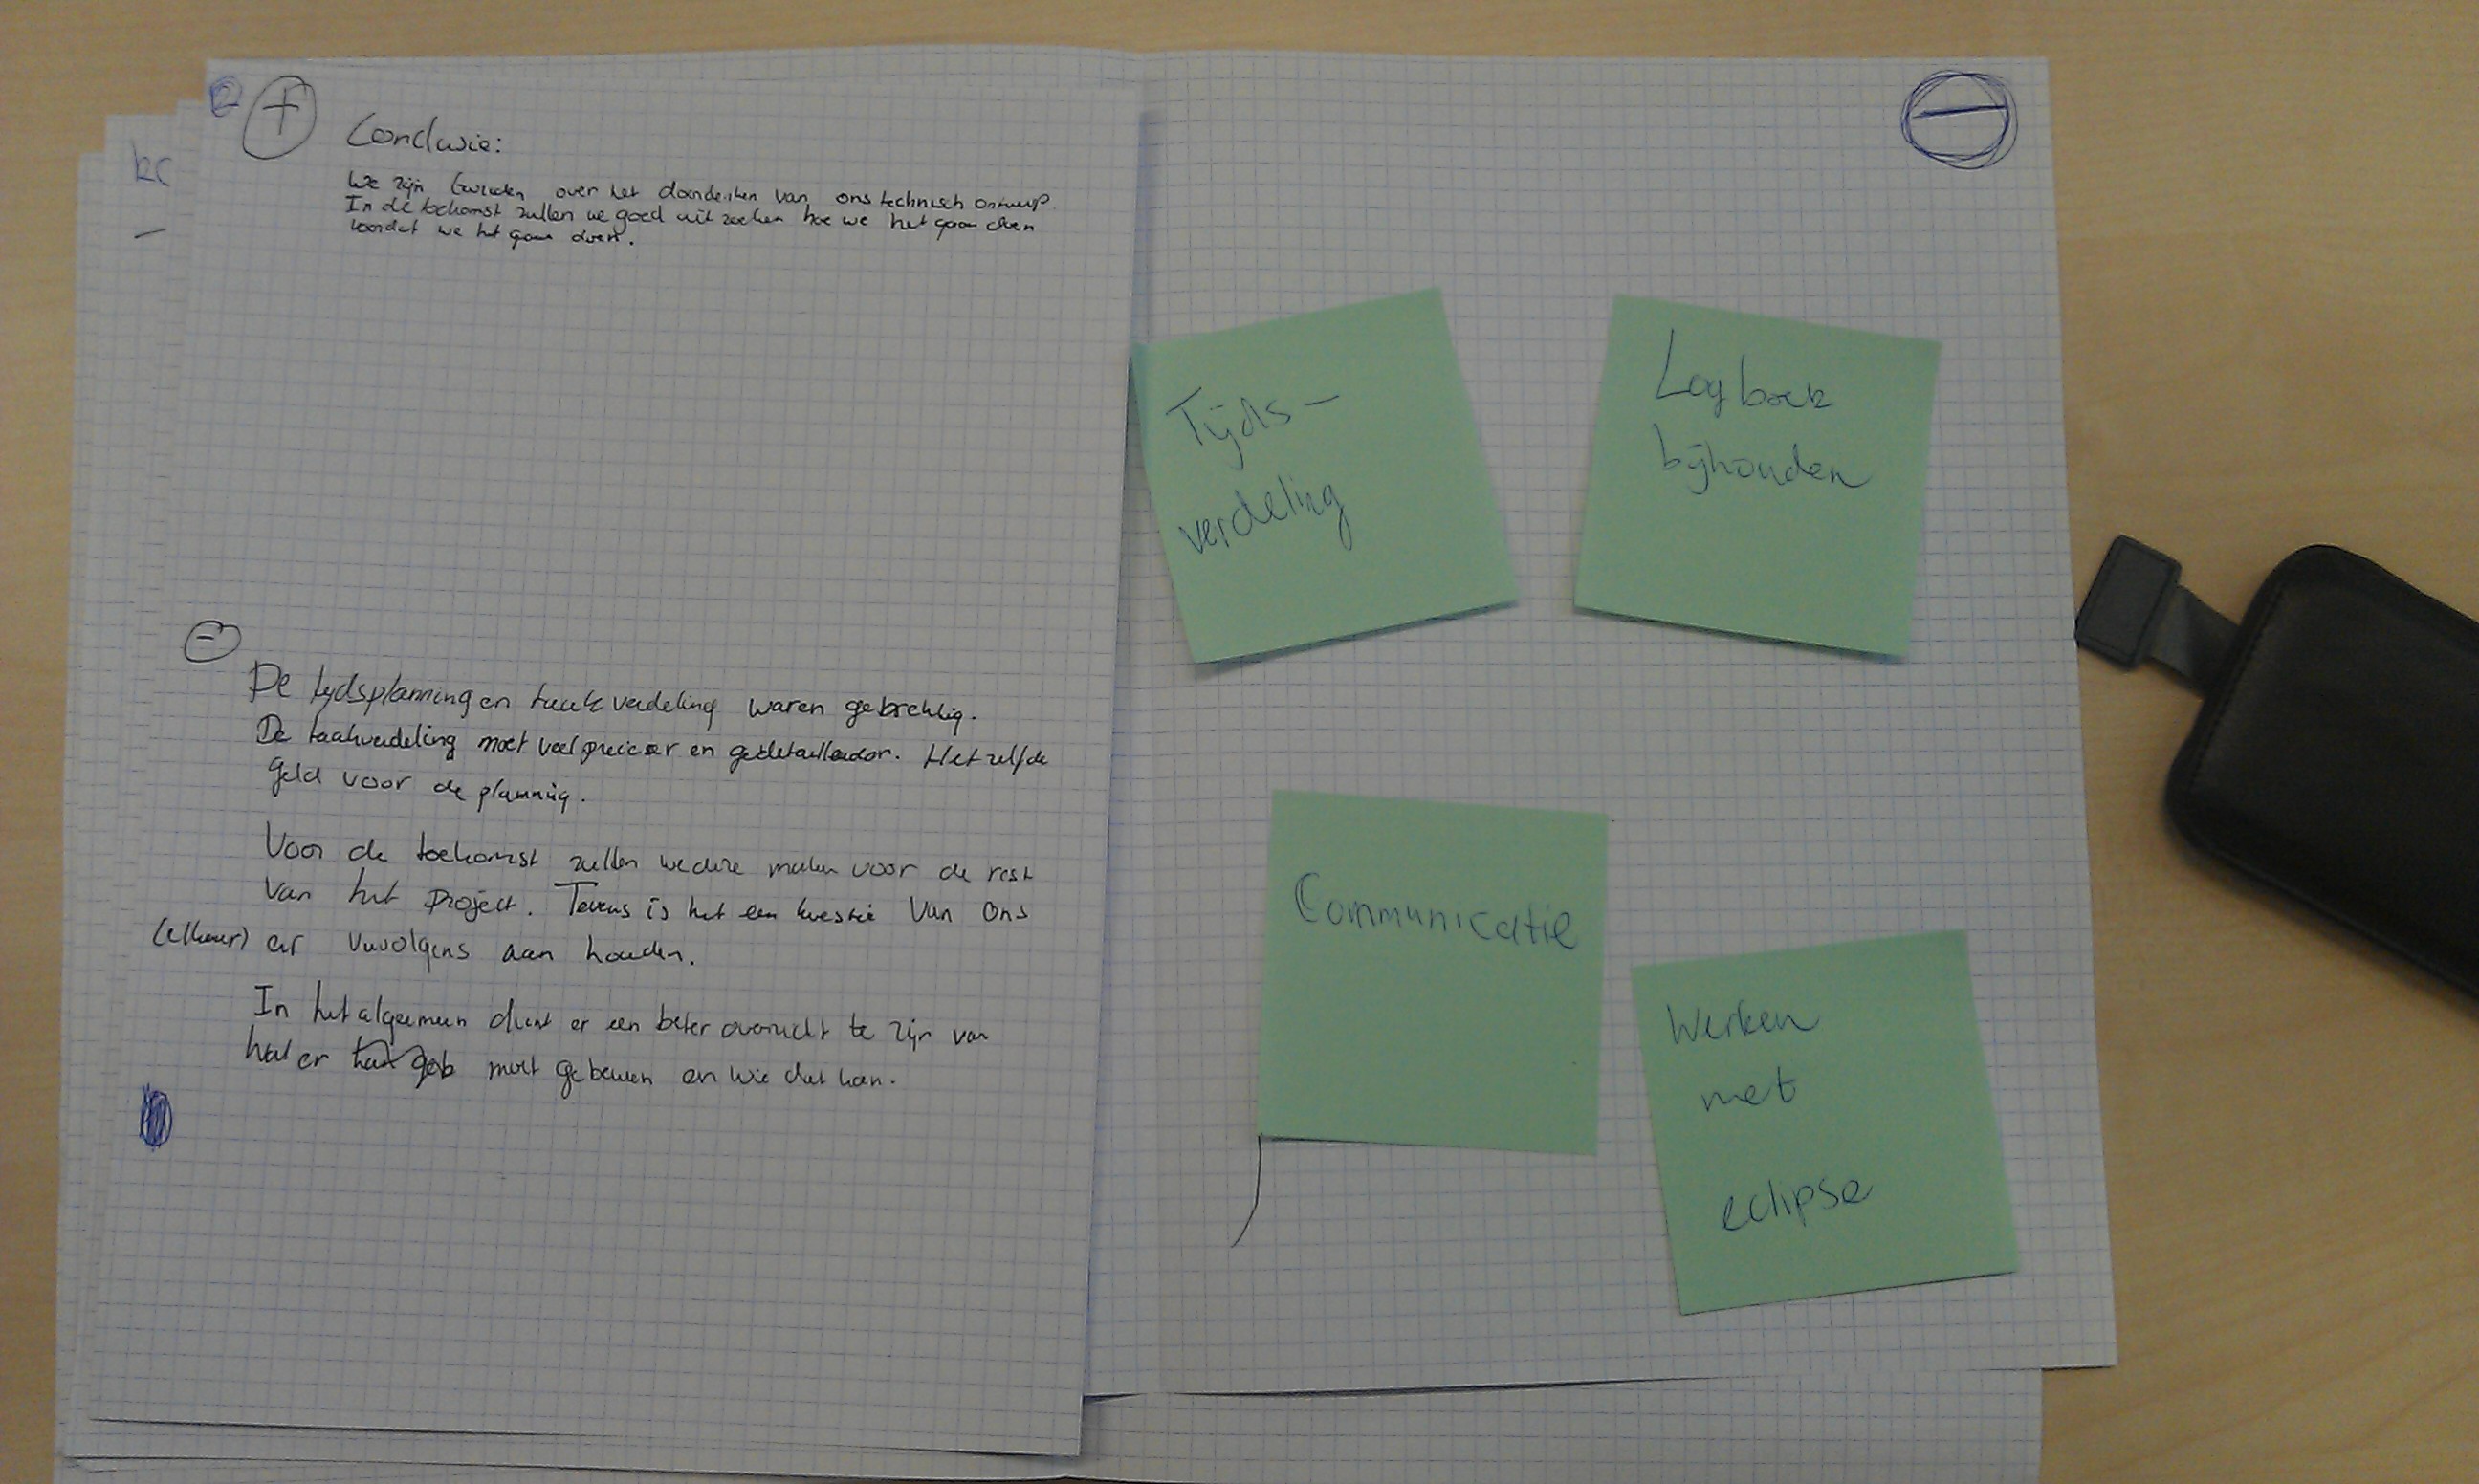 +
Conclusie:
We zijn tevreden over het doordenken van ons technisch ontwerp
In de toekomst zullen we goed uit zoeken hoe we het gaan doen
voordat we het gaan doen.
-
De tijdsplanning en taakverdeling waren gebrekkig.
De taakverdeling moet veel preciezer en gedetailleerder. Het zelfde
geld voor de planning.
Voor de toekomst zullen we deze maken voor de rest
van het project. Tevens is het een kwestie van ons
(elkaar) er vervolgens aan houden.
In het algemeen dient er een beter overzicht te zijn van
wat er moet gebeuren en wie dat kan.
-
Tijds-
verdeling
Logboek
bijhouden
Communicatie
Werken
met
eclipse